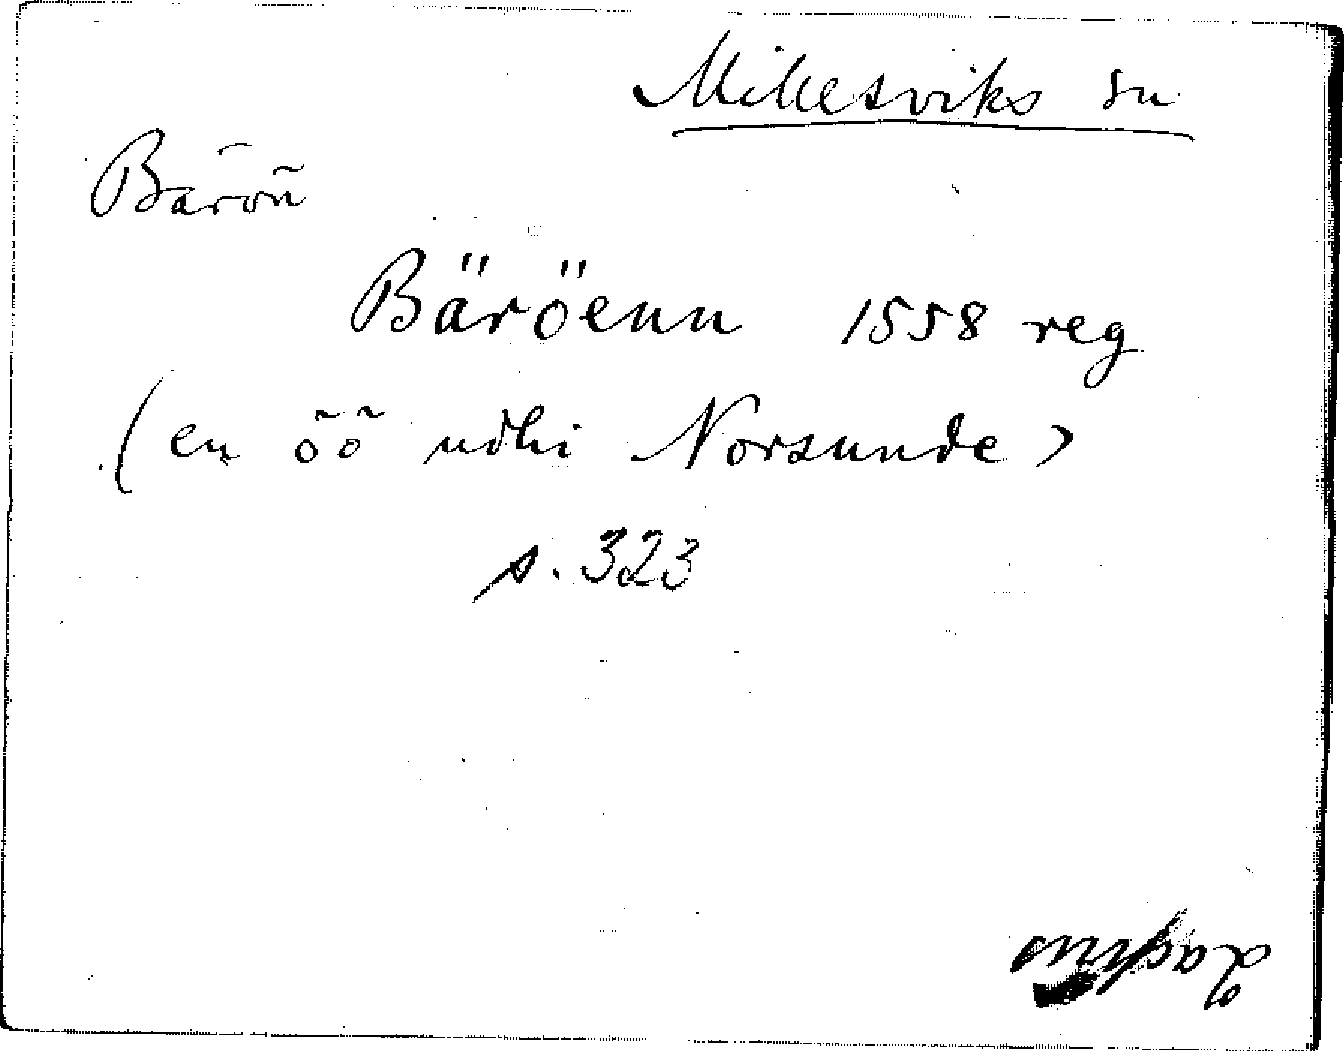 Mikesviks sn
Bärön
Bäröenn 1558 reg
(en öö udhi Norsunde)
s. 323